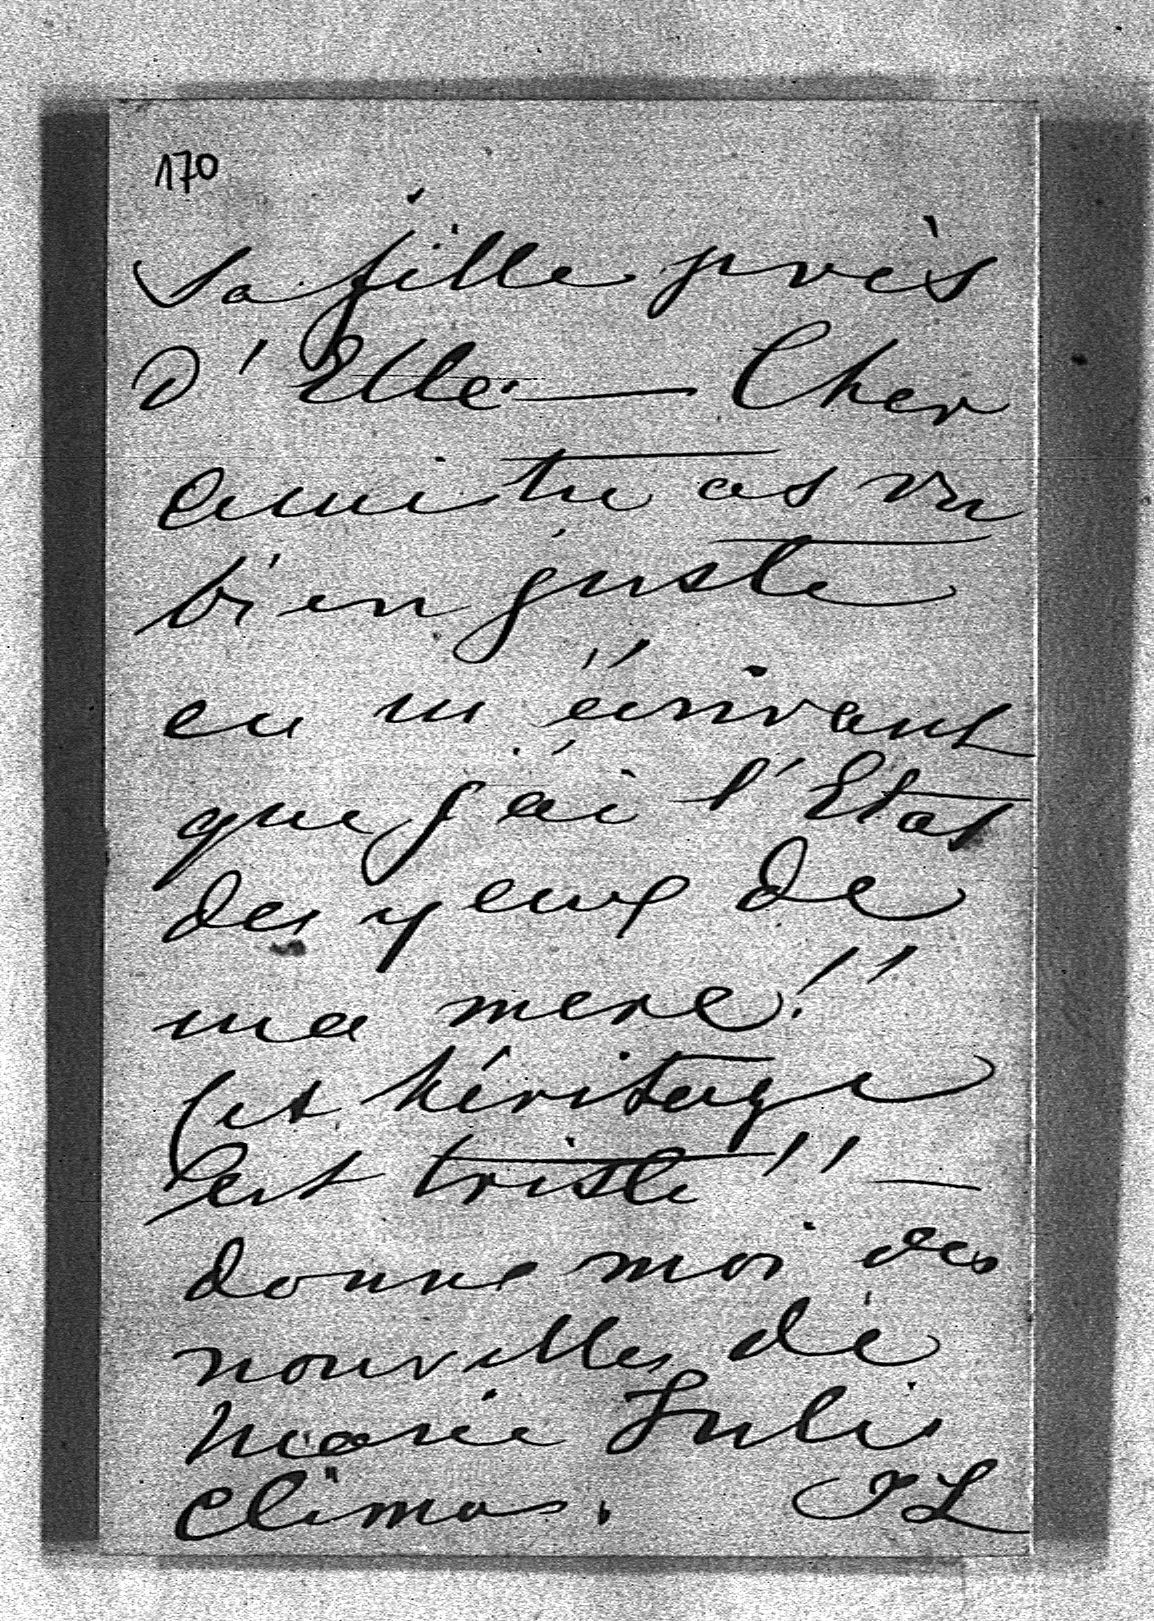 170
sa fille près
d'Elle. — Cher
ami tu as vu
bien juste
en m'écrivant
que j'ai l'Etat
des yeux de
ma mere!!
Cet héritage
est triste!! —
donne moi des
nouvelles de
Marie Julie
Climas. JL